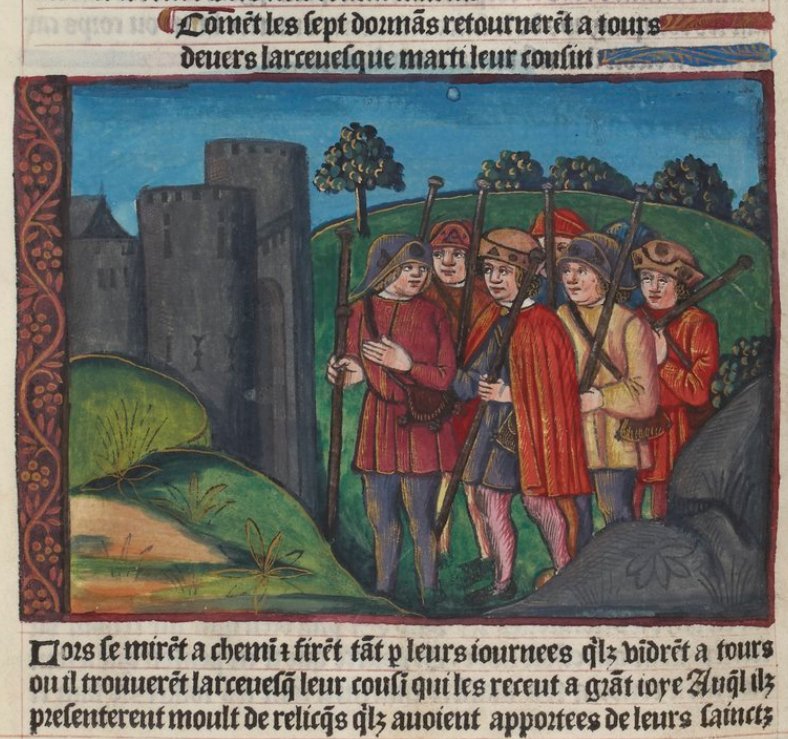 Cõmẽt les sept dormãs retournerẽt a tours
deuers larceuesque marti leur cousin
Lors se mirẽt a chemĩ ⁊ firẽt tãt p leurs iournees q̃lz vĩdrẽt a tours
ou il trouuerẽt larceuesq̃ leur cousĩ qui les receut a grãt ioye Auq̃l ilz
presenterent moult de relicq̃s q̃lz auoient apportees de leurs sainctz